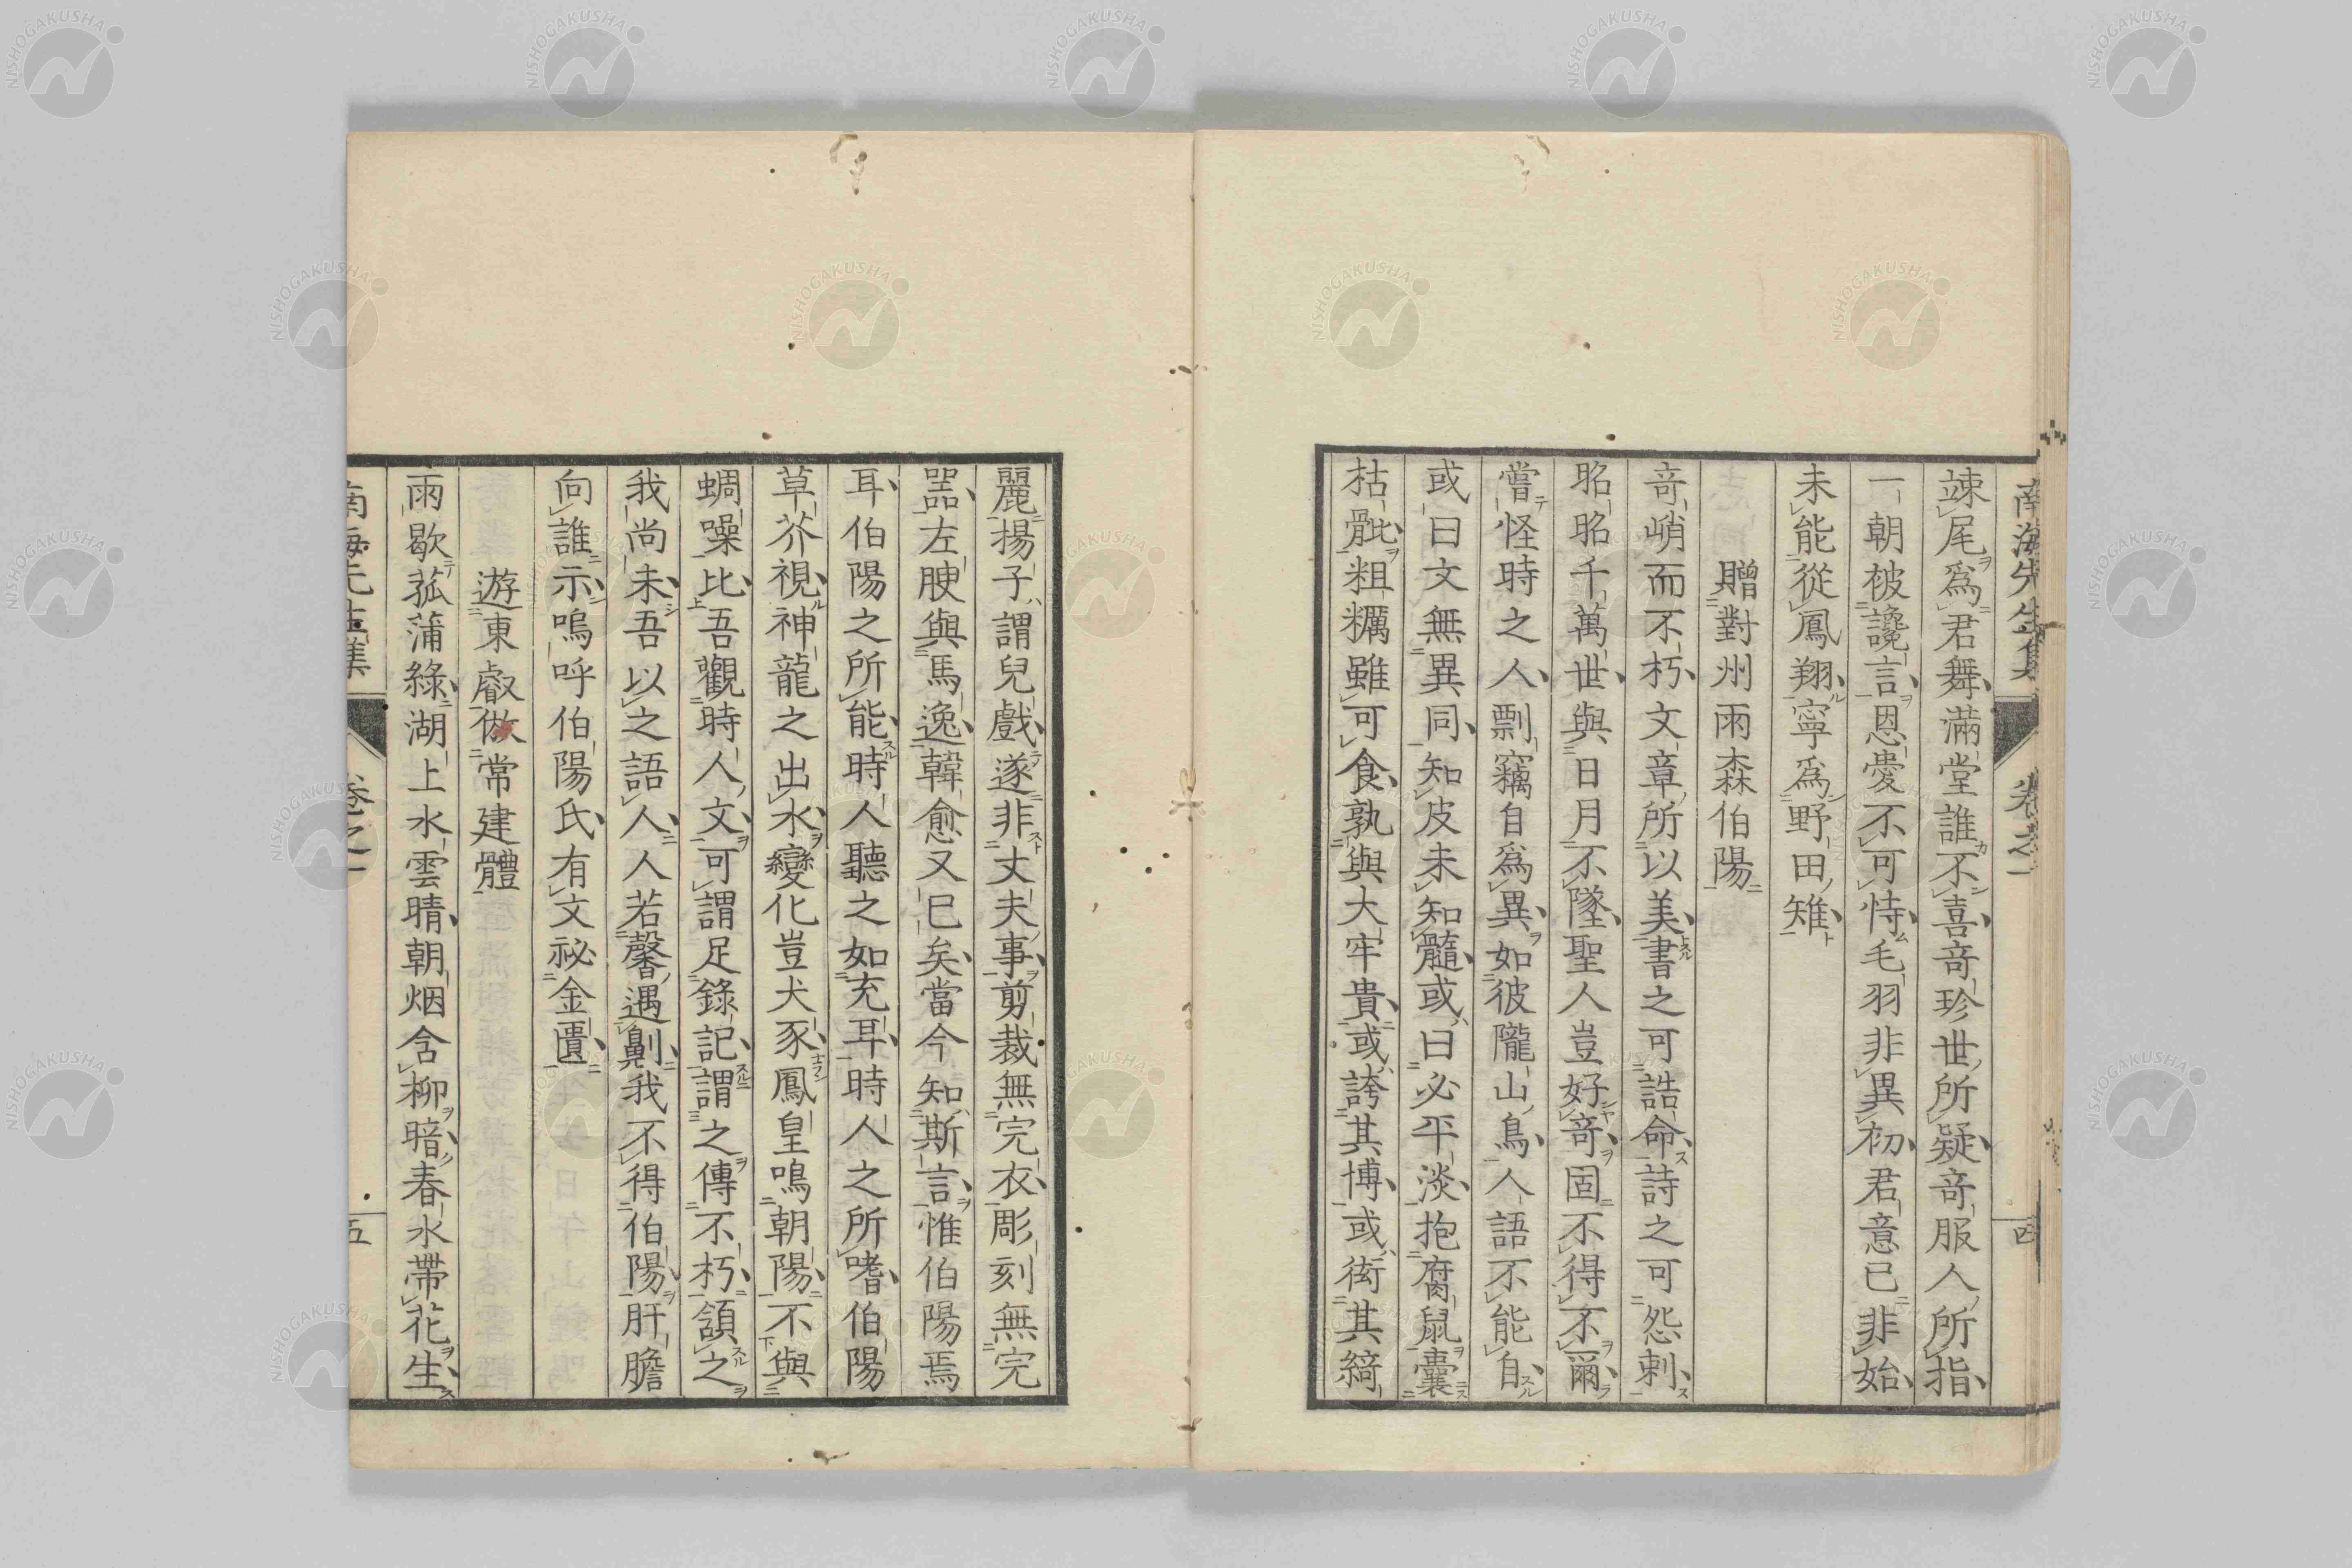 南海先生集 卷之一 四
竦尾爲君舞滿堂誰不喜竒珍世所疑竒服人所指
一朝被讒言恩愛不可恃毛羽非異初君意已非始
未能從鳳翔寧爲野田雉
贈對州雨森伯陽
竒峭而不朽文章所以美書之可誥命詩之可怨刺
昭昭千萬世與日月不墜聖人豈好竒固不得不爾
嘗怪時之人剽竊自爲異如彼隴山鳥人語不能自
或曰文無異同知皮未知髓或曰必平淡抱腐鼠囊
枯骴粗糲雖可食孰與大牢貴或誇其博或衒其綺
麗揚子謂兒戲遂非丈夫事剪裁無完衣彫刻無完
噐左腴與馬逸韓愈又已矣當今知斯言惟伯陽焉
耳伯陽之所能時人聽之如充耳時人之所嗜伯陽
草芥視神龍之出水變化豈犬豕鳳皇鳴朝陽不與
蜩噪比吾觀時人文可謂足錄記謂之傳不朽頷之
我尚未吾以之語人人若馨遇劓我不得伯陽肝膽
向誰示嗚呼伯陽氏有文祕金匱
遊東叡倣常建體
雨歇菰蒲綠湖上水雲晴朝烟含柳暗春水帶花生
南海先生集 卷之一 五
NISHOGAKUSHA